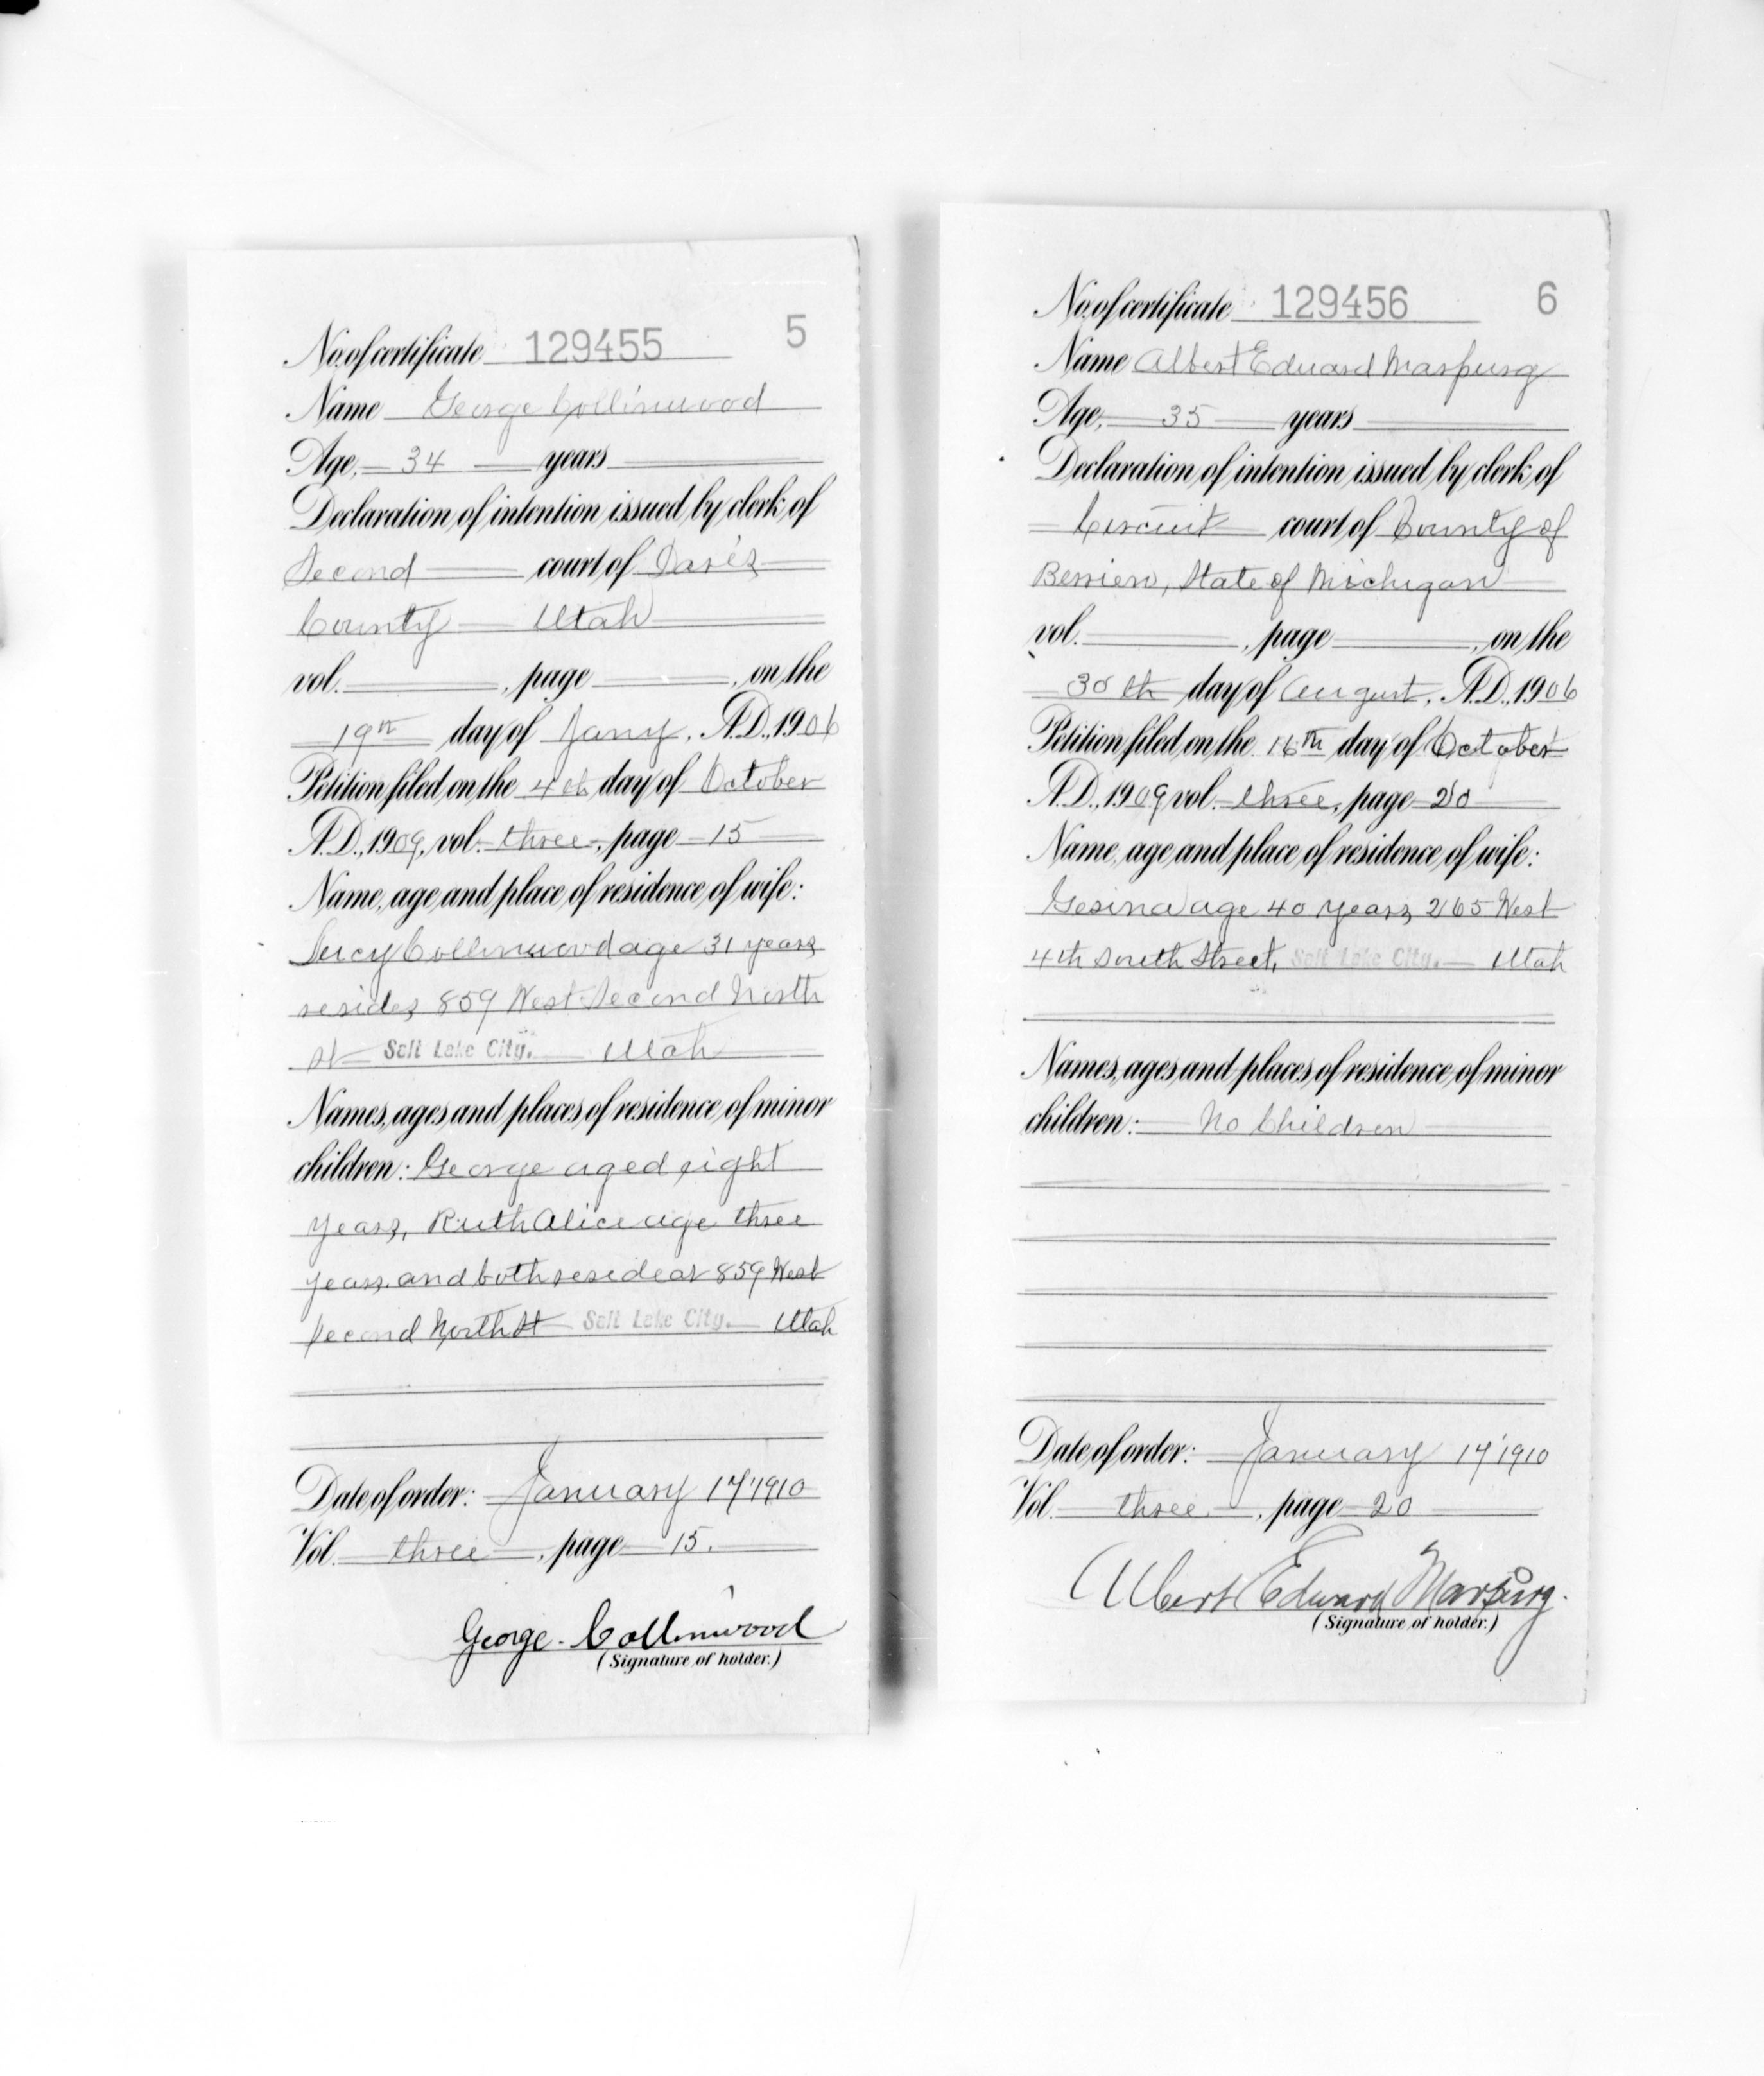 No. of certificate 129455 5
Name George Collinwood
Age, 34 years
Declaration of intention issued by clerk of
Second court of Davis
County Utah
vol. , page , on the
19th day of Jany, A.D., 1906
Petition filed on the 4th day of October
A.D., 1909, vol. three, page 15
Name, age and place of residence of wife:
Lucy Collinwood age 31 years
resides 859 West Second North
st Salt Lake City. Utah
Names, ages and places of residence of minor
children: George aged eight
years, Ruth Alice age three
years. and both reside at 859 West
Second North St Salt Lake City. Utah
Date of order: January 17 1910
Vol. three, page 15.
George Collinwood
(Signature of holder.)
No. of certificate 129456 6
Name Albert Eduard
Age, 35 years
Declaration of intention issued by clerk of
Circuit court of County of
Berrien, State of Michigan
vol. , page , on the
30th day of August, A.D., 1906
Petition filed on the 16th day of October
A.D., 1909 vol. three, page 20
Name, age and place of residence of wife:
Gesina age 40 years, 265 West
4th South Street, Salt Lake City. Utah
Names, ages and places of residence of minor
children: No Children
Date of order: January 17 1910
Vol. three, page 20
Albert Eduard
(Signature of holder.)